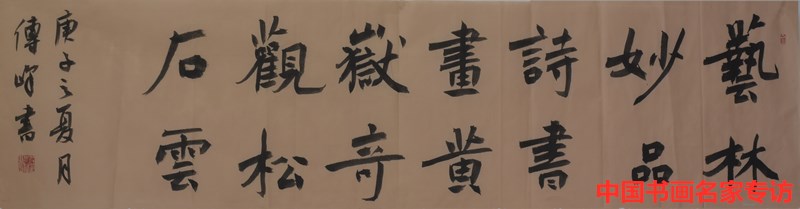 藝林
妙品
詩書
畫黄
嶽奇
觀松
石雲
庚子之夏月
傅峰書
中国书画名家专访